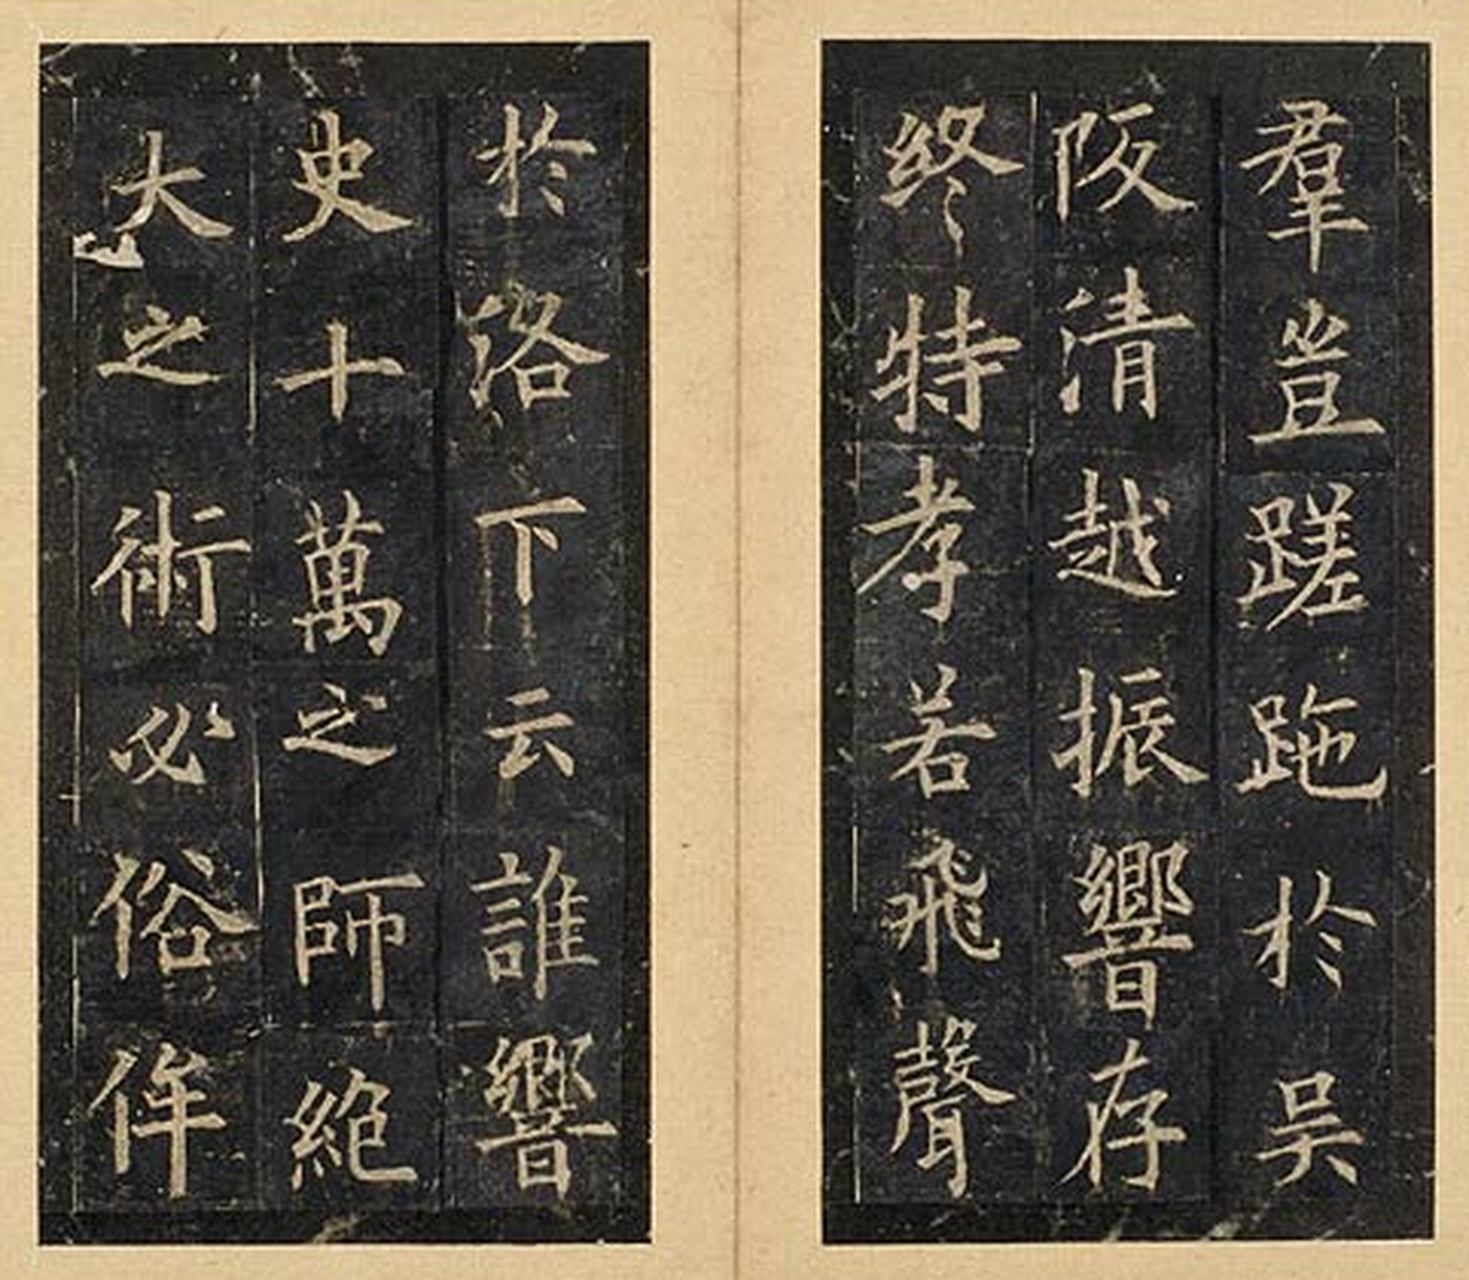 羣豈蹉跎於吴
阪清越振響存
終特孝若飛聲
於洛下云誰響
史十萬之師絶
大之術必俗侔